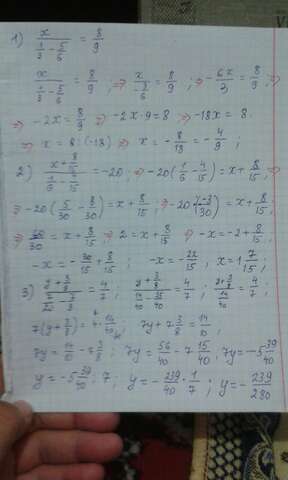 1) x/(1/3 - 5/6) = 8/9
x/(1/3 - 5/6) = 8/9 ; ⇒ x/(-3/6) = 8/9 ; ⇒ -6x/3 = 8/9 ; ⇒
⇒ -2x = 8/9 ⇒ -2x·9 = 8 ; ⇒ -18x = 8 .
⇒ x = 8:(-18) ⇒ x = -8/18 = -4/9 ;
2) (x + 8/15)/(1/6 - 4/15) = -20 ; ⇒ -20(1/6 - 4/15) = x + 8/15 ; ⇒
⇒ -20(5/30 - 8/30) = x + 8/15 ; ⇒ -20(-3/30) = x + 8/15 ;
⇒ 60/30 = x + 8/15 ; ⇒ 2 = x + 8/15 ; ⇒ -x = -2 + 8/15 ;
-x = -30/15 + 8/15 ; -x = -22/15 , x = 1 7/15 ;
3) = 4/7 ; = 4/7 ;
7(y + 3/8) = ; 7y + 7 3/8 = 14/10 ;
7y = 14/10 - 7 3/8 ; 7y = 56/40 - 7 15/40 ; 7y = -5 39/40
y = -5 39/40 : 7 ; y = -239/40 · 1/7 ; y = -239/280